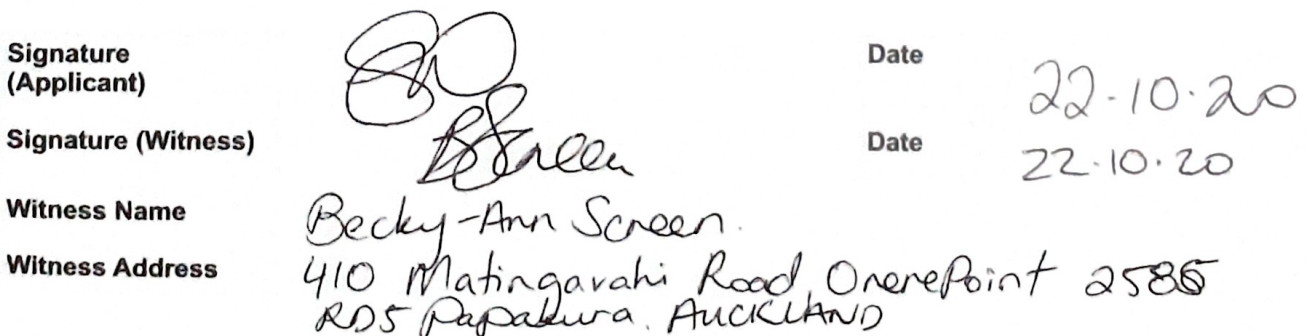 Signature
(Applicant)
Date
22.10.20
Signature (Witness)
BScreen
Date
22.10.20
Witness Name
Becky-Ann Screen.
Witness Address
410 Matingarahi Road, OrerePoint 2585
RD5 Papakura. AUCKLAND